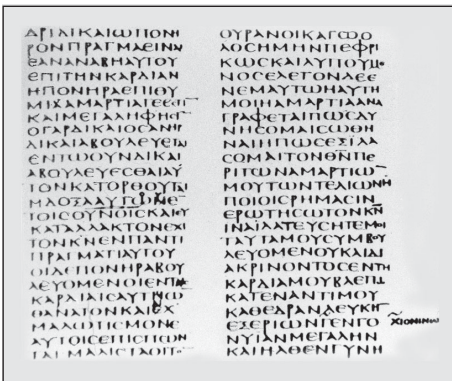 ΔΡΙΔΙΚΑΙΩΠΟΝΗ
ΡΟΝΠΡΑΓΜΑΕΙΝΑΙ
ΕΑΝΑΝΑΒΗΑΥΤΟΥ
ΕΠΙΤΗΝΚΑΡΔΙΑΝ
ΗΠΟΝΗΡΑΕΠΙΘΥ
ΜΙΑΑΜΑΡΤΙΑΓΕΕϹΤΙ
ΚΑΙΜΕΓΑΛΗΦΗϹΙ
ΟΓΑΡΔΙΚΑΙΟϹΑΝΗΡ
ΔΙΚΑΙΑΒΟΥΛΕΥΕΤΑΙ
ΕΝΤΩΟΥΝΔΙΚΑΙ
ΑΒΟΥΛΕΥΕϹΘΑΙΑΥ
ΤΟΝΚΑΤΟΡΘΟΥΤΑΙ
ΤΟΙϹΟΥΝΟΙϹΚΑΙΕΥ
ΚΑΤΑΛΛΑΚΤΟΝΕΧΙ
ΤΟΝΚ̅Ν̅ΕΝΠΑΝΤΙ
ΠΡΑΓΜΑΤΙΑΥΤΟΥ
ΟΙΔΕΠΟΝΗΡΑΒΟΥ
ΛΕΥΟΜΕΝΟΙΕΝΤΑΙϹ
ΚΑΡΔΙΑΙϹΑΥΤΩ
ΘΑΝΑΤΟΝΚΑΙΕΧ
ΜΑΛΩΤΙϹΜΟΝΕ
ΑΥΤΟΙϹΕΠΙϹΠΩΝ
ΤΑΙΜΑΛΙϹΤΑΟΙΤΟ
ΟΥΡΑΝΟΙΚΑΓΩΟ
ΛΟϹΗΜΗΝΠΕΦΡΙ
ΚΩϹΚΑΙΛΥΠΟΥΜΕ
ΝΟϹΕΛΕΓΟΝΔΕΕ
ΝΕΜΑΥΤΩΗΑΥΤΗ
ΜΟΙΗΑΜΑΡΤΙΑΑΝΑ
ΓΡΑΦΕΤΑΙΠΩϹΔΥ
ΝΗϹΟΜΑΙϹΩΘΗ
ΝΑΙΗΠΩϹΕΞΙΛΑ
ϹΟΜΑΙΤΟΝΘ̅Ν̅ΠΕ
ΡΙΤΩΝΑΜΑΡΤΙΩ̅
ΜΟΥΤΩΝΤΕΛΙΩΝΗ
ΠΟΙΟΙϹΡΗΜΑϹΙΝ
ΕΡΩΤΗϹΩΤΟΝΚ̅Ν̅
ΙΝΑΙΛΑΤΕΥϹΗΤΕΜΟΙ
ΤΑΥΤΑΜΟΥϹΥΜΒΟΥ
ΛΕΥΟΜΕΝΟΥΚΑΙΔΙ
ΑΚΡΙΝΟΝΤΟϹΕΝΤΗ
ΚΑΡΔΙΑΜΟΥΒΛΕΠΩ
ΚΑΤΕΝΑΝΤΙΜΟΥ
ΚΑΘΕΔΡΑΝΛΕΥΚΗ̅
ΕΞΕΡΙΩΝΓΕΝΓΟ
ΧΙΟΝΙΝΩ
ΝΥΙΑΝΜΕΓΑΛΗΝ
ΚΑΙΗΛΘΕΝΓΥΝΗ